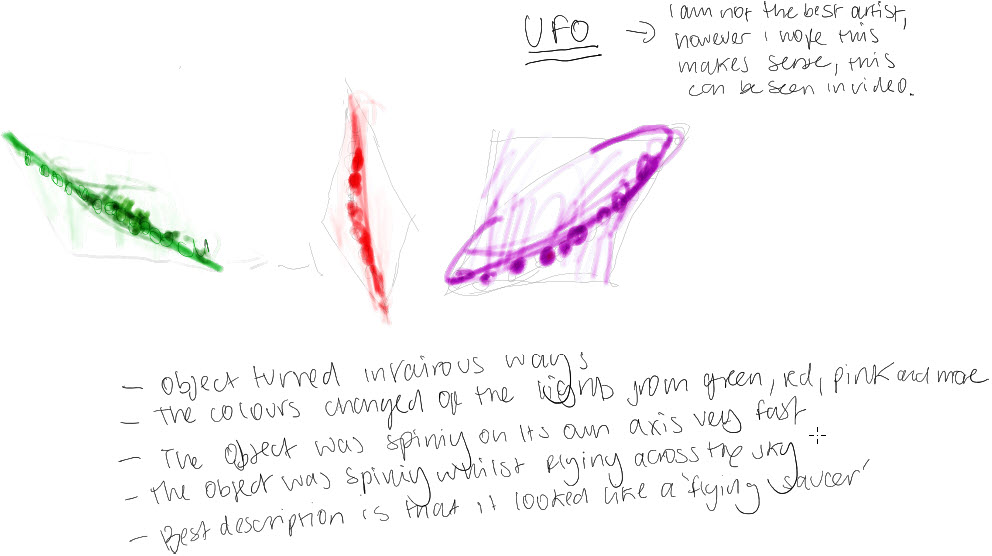 UFO → I am not the best artist,
however i hope this
makes sense, this
can be seen in video.
- Object turned in vairous ways
- The colours changed of the lights from green, red, pink and more
- The object was spinig on its own axis very fast
- The object was spinig whilst flying across the sky
- Best description is that it looked like a 'flying saucer'